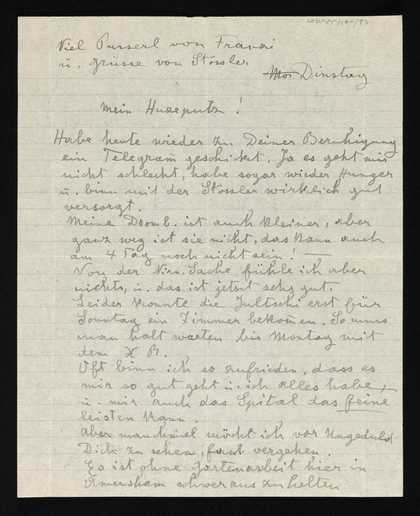 Viel Pusserl von Franzi
u. Grüsse von Stössler
Dinstag
Mein Huzeputz!
Habe heute wieder zu Deiner Beruhigung
ein Telegram geschickt. Ja es geht mir
nicht schlecht, habe sogar wieder Hunger
u. binn mit der Stössler wirklich gut
versorgt.
Meine Tromb. ist auch kleiner, aber
ganz weg ist sie nicht, das kann auch
am 4 Tag noch nicht sein! —
Von der Sache fühle ich aber
nichts, u. das ist jetzt sehr gut.
Leider konnte die Jultschi erst für
Sonntag ein Zimmer bekomen. So muss
man halt warten bis Montag mit
dem X
Oft binn ich so zufrieden, dass es
mir so gut geht u. ich alles habe,
u. mir auch das Spital das feine
leisten kann.
Aber manchmal möcht ich vor Ungeduld
Dich zu sehen, fast vergehen.
Es ist ohne Gartenarbeit hier in
Amersham schwer auszuhalten